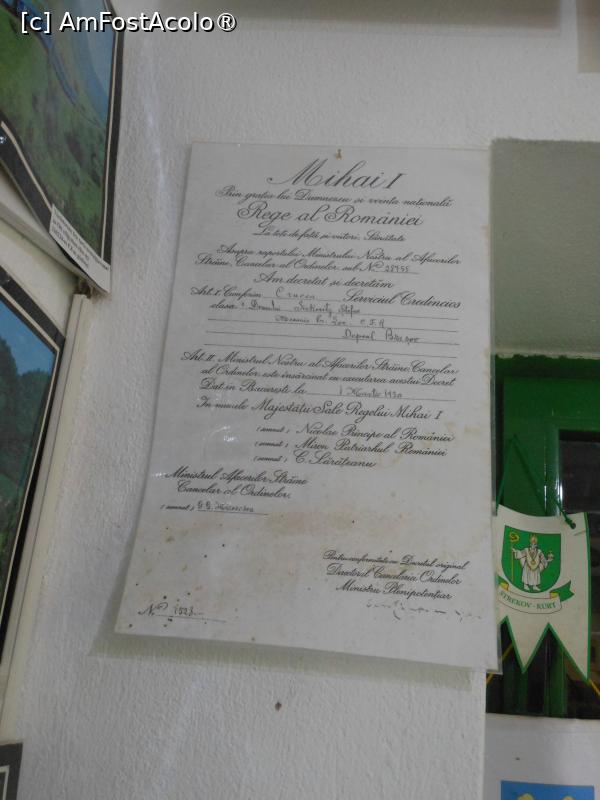 [c] AmFostAcolo®
Mihai I
Prin gratia lui Dumnezeu si vointa nationalä
Rege al României
La toti de fatä si viitori, Sänätate
Asupra raportului Ministrului Nostru al Afacerilor
Sträine, Cancelar al Ordinelor, sub No. 28955
Am decretat si decretäm
Art. I. Conferim Crucea Serviciul Credincios
clasa Domnului Stefan
Mecanic C.F.R.
Depoul Brasov
Art. II. Ministrul Nostru al Afacerilor Sträine, Cancelar
al Ordinelor, este însärcinat cu executarea acestui Decret
Dat in Bucuresti la 1 Martie 1930
In numele Majestätii Sale Regelui Mihai I
(semnat) Nicolae Principe al României
(semnat) Miron Patriarhul României
(semnat) C. Säräteanu
Ministrul Afacerilor Sträine
Cancelar al Ordinelor,
(semnat) G. G. Mironescu
Pentru conformitate cu Decretul original
Directorul Cancelariei Ordinelor
Ministru Plenipotentiar
No.
STREKOV - KÜRT